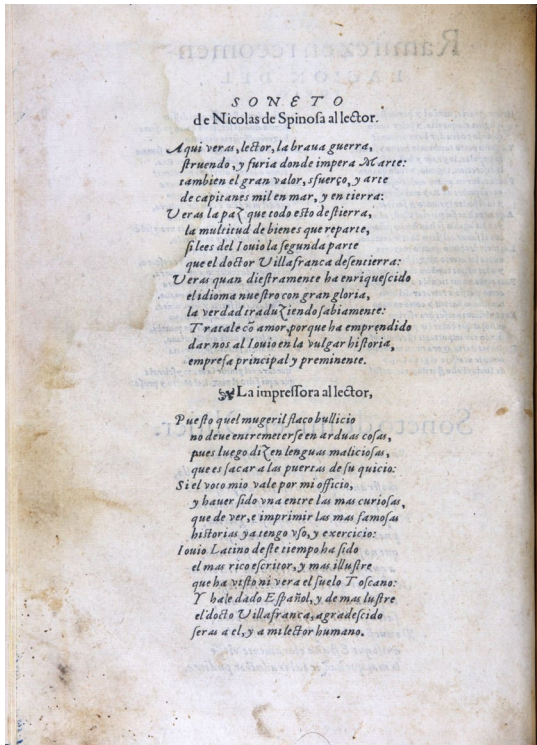 SONETO
de Nicolas de Spinosa al lector.
Aqui veras, lector, la braua guerra,
struendo, y furia donde impera Marte:
tambien el gran valor, sfuerço, y arte
de capitanes mil en mar, y en tierra:
Veras la paz que todo esto destierra,
la multitud de bienes que reparte,
si lees del Iouio la segunda parte
que el doctor Villafranca desentierra:
Veras quan diestramente ha enriquescido
el idioma nuestro con gran gloria,
la verdad traduziendo sabiamente:
Tratale cõ amor, porque ha emprendido
dar nos al Iouio en la vulgar historia,
empresa principal y preminente.
La impressora al lector,
Puesto quel mugeril flaco bullicio
no deue entremeterse en arduas cosas,
pues luego dizen lenguas maliciosas,
que es sacar a las puertas de su quicio:
Si el voto mio vale por mi officio,
y hauer sido vna entre las mas curiosas,
que de ver, e imprimir las mas famosas
historias ya tengo vso, y exercicio:
Iouio Latino deste tiempo ha sido
el mas rico escritor, y mas illustre
que ha visto ni vera el suelo Toscano:
Y hale dado Español, y de mas lustre
el docto Villafranca, agradescido
seras a el, y a mi lector humano.